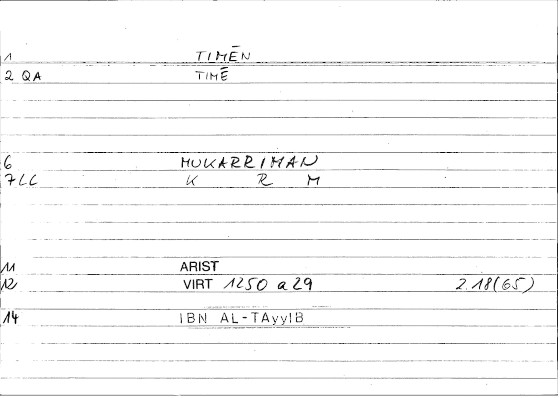 1 TIMĒN
2 QA TIMĒ
6 MUKARRIMAN
7 LC K R M
11 ARIST
12 VIRT 1250 a 29 2.18(65)
14 IBN AL-TAyyIB